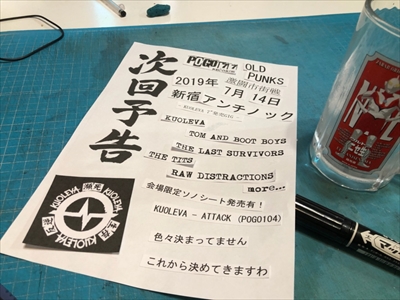 次回予告
POGO77 OLD
RECORDS
PUNKS
2019年 激闘市街戦
7月 14日
新宿アンチノック
KUOLEVA
TOM AND BOOT BOYS
THE LAST SURVIVORS
THE TITS
RAW DISTRACTIONS
more...
会場限定ソノシート発売有！
KUOLEVA - ATTACK (POGO104)
色々決まってません
これから決めてきますわ
KUOLEVA
KUOLEVA
KUOLEVA
マッキー